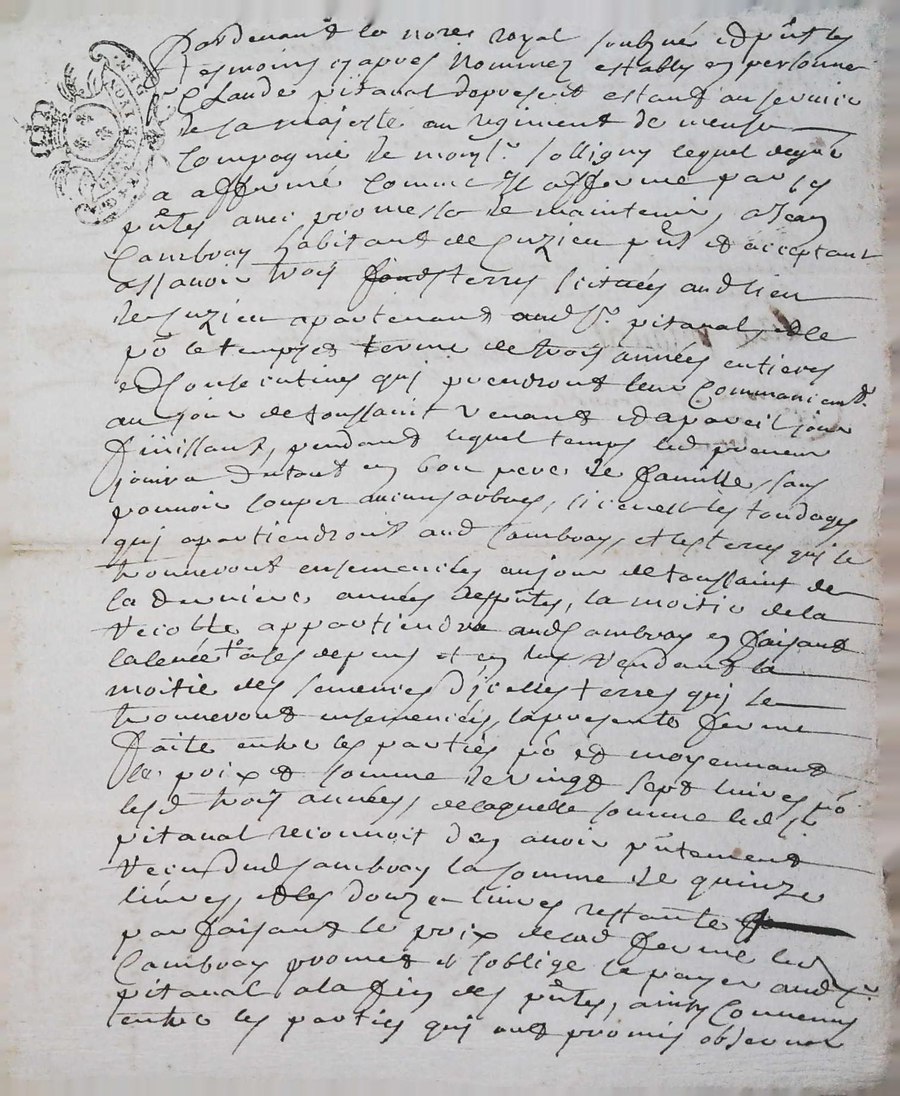 Pardevant le nore royal soubzné et pñt les
tesmoins cy apres nommez estably en personne
Sr Claude pitaval dapresent estant au service
de sa majesté au regiment de meuse
Compagnie de monsr solligny lequel de gré
a affermé comme Il afferme par ces
pñtes avec promesse de maintenir, a Jean
Cambray habitant de Cuzieu pñt et acceptant
assavoir trois terres scituées aud lieu
de Cuzieu apartenant aud Sr pitaval, et ce
pō le temps et terme de trois années entieres
et consecutives qui prendront leur Commancemt
au jour de toussaint venant et a pareil jour
finissant, pendant lequel temps led preneur
jouira du tout en bon pere de famille, sans
pouvoir couper aucuns arbres, si ce nest les tondages
qui apartiendront aud Cambray, et les terres qui se
trouveront ensemencées au jour de toussaint de
la derniere années des pñtes, la moitie de la
recolte appartiendra aud Cambray en faisant
la levée a ses depens et en luy rendant la
moitie des semences d'icelles terres qui se
trouveront ensemencées, la presente ferme
faite entre les parties pō et moyennant
le prix et somme de vingt sept livres pō
lesd trois années, de laquelle somme led Sr
pitaval reconnoit den avoir pñtement
receu dud Cambray la somme de quinze
livres, et les douze livres restante
parfaisant le prix de lad ferme led
Cambray promet et soblige le payer aud Sr
pitaval a la fin des pñtes, ainsy convenu
entre les parties qui ont promis observer